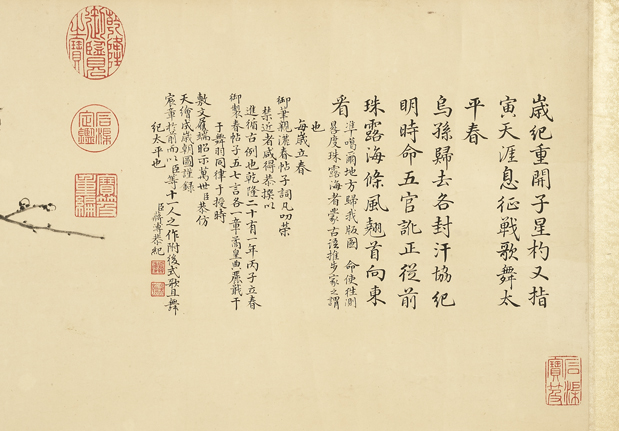 歲紀重開子星杓又指
寅天涯息征戰歌舞太
平春
烏孫歸去各封汗協紀
明時命五官訛正從前
珠露海條風翹首向東
看
準噶爾地方歸我版圖 命使往測
晷度珠露海者蒙古語推步家之謂
也
每歲立春
御筆親灑春帖子詞凡叨榮
禁近者咸得恭撰以
進循古例也乾隆二十有一年丙子立春
御製春帖子五七言各一章
于舞羽同律于授時
敷文 昭示萬世臣恭仿
天繪成歲朝圖謹錄
宸章於前而以臣等十一人之作附後式歌且舞
紀太平也
臣蔣溥恭紀
乾隆御覽之寶
石渠定鑑
寶笈重編
石渠寶笈